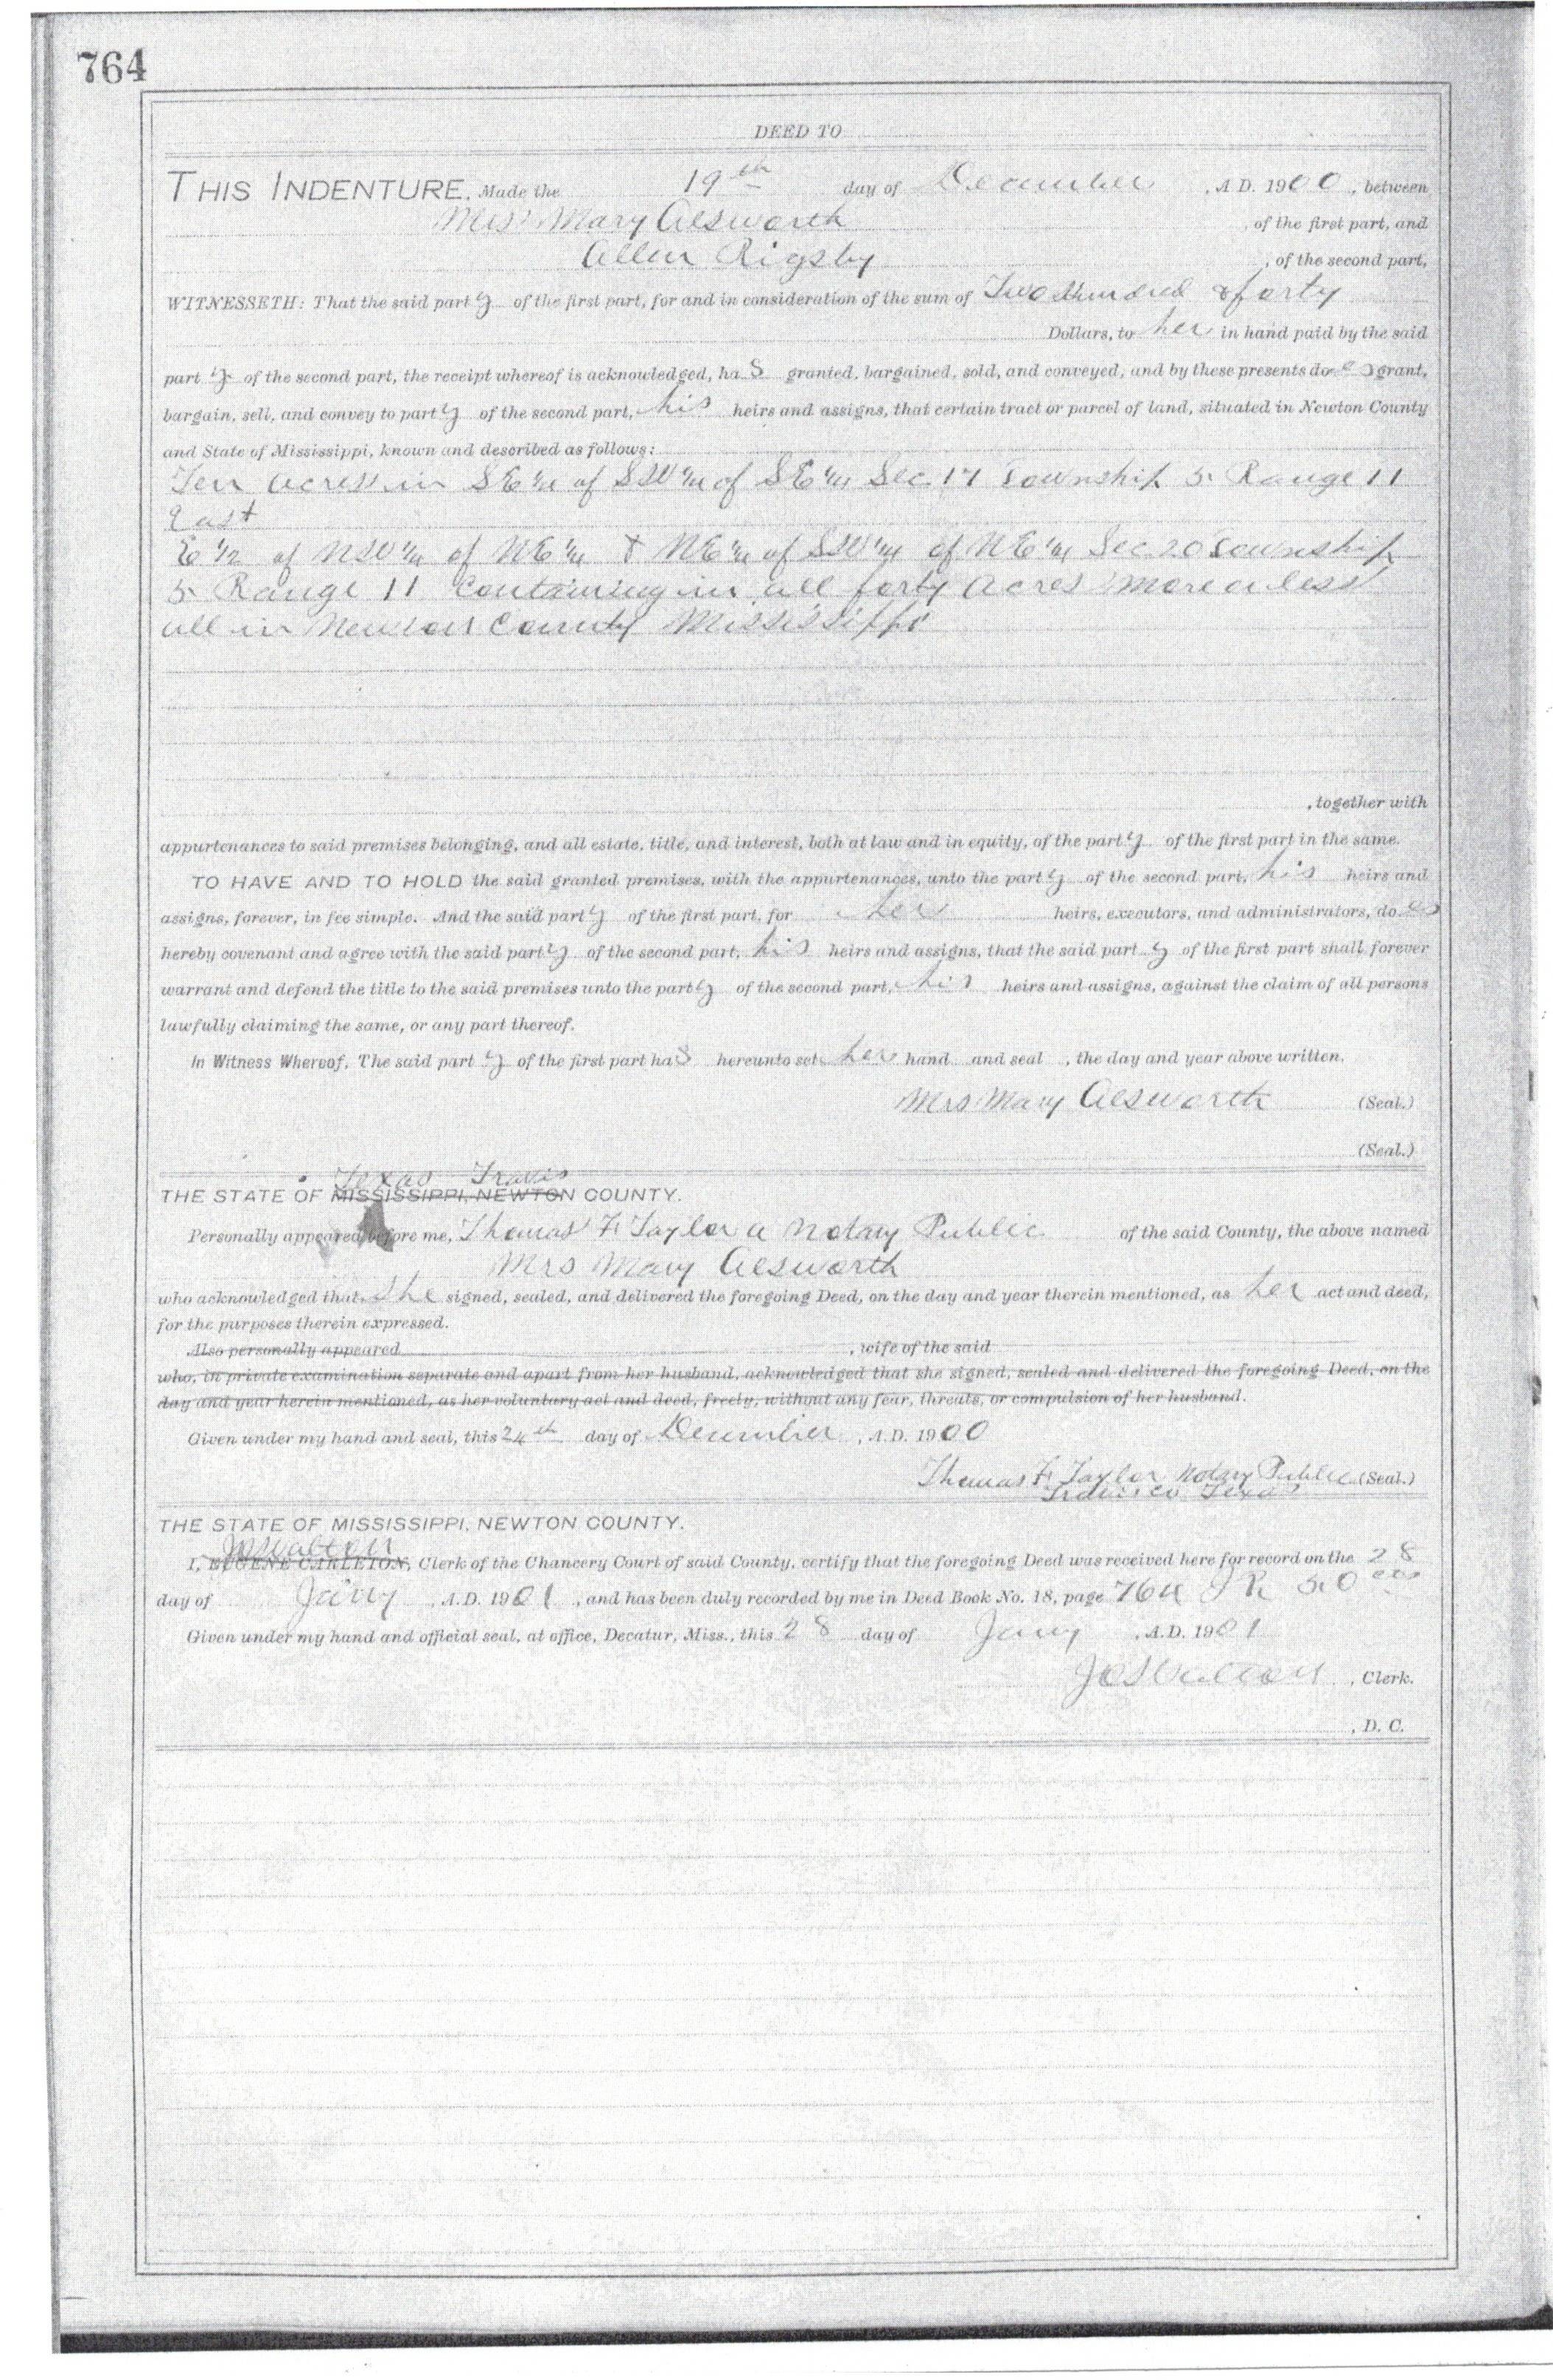 764
DEED TO
THIS INDENTURE, Made the 19th day of December, A. D. 1900, between
Mrs Mary Alsworth, of the first part, and
Allen Rigsby, of the second part,
WITNESSETH: That the said party of the first part, for and in consideration of the sum of Two Hundred & forty
Dollars, to her in hand paid by the said
party of the second part, the receipt whereof is acknowledged, has granted, bargained, sold, and conveyed, and by these presents does grant,
bargain, sell, and convey to party of the second part, his heirs and assigns, that certain tract or parcel of land, situated in Newton County
and State of Mississippi, known and described as follows:
Ten acres in SE¼ of SW¼ of SE¼ Sec. 17 Township 5. Range 11
East
E½ of NW¼ of NE¼ & NE¼ of SW¼ of NE¼ Sec. 20 Township
5. Range 11 Containing in all forty acres more or less
all in Newton County Mississippi
, together with
appurtenances to said premises belonging, and all estate, title, and interest, both at law and in equity, of the party of the first part in the same.
TO HAVE AND TO HOLD the said granted premises, with the appurtenances, unto the party of the second part, his heirs and
assigns, forever, in fee simple. And the said party of the first part, for her heirs, executors, and administrators, does
hereby covenant and agree with the said party of the second part, his heirs and assigns, that the said party of the first part shall forever
warrant and defend the title to the said premises unto the party of the second part, his heirs and assigns, against the claim of all persons
lawfully claiming the same, or any part thereof.
In Witness Whereof, The said party of the first part has hereunto set her hand and seal , the day and year above written.
Mrs Mary Alsworth (Seal.)
(Seal.)
Texas Travis
THE STATE OF MISSISSIPPI, NEWTON COUNTY.
Personally appeared before me, Thomas F. Taylor a Notary Public of the said County, the above named
Mrs Mary Alsworth
who acknowledged that she signed, sealed, and delivered the foregoing Deed, on the day and year therein mentioned, as her act and deed,
for the purposes therein expressed.
Also personally appeared , wife of the said
who, in private examination separate and apart from her husband, acknowledged that she signed, sealed and delivered the foregoing Deed, on the
day and year herein mentioned, as her voluntary act and deed, freely, without any fear, threats, or compulsion of her husband.
Given under my hand and seal, this 24th day of December, A. D. 1900
Thomas F. Taylor Notary Public (Seal.)
Texas
THE STATE OF MISSISSIPPI, NEWTON COUNTY.
Jo Walton
I, EUGENE CARLETON, Clerk of the Chancery Court of said County, certify that the foregoing Deed was received here for record on the 28
day of Jany, A. D. 1901, and has been duly recorded by me in Deed Book No. 18, page 764
Given under my hand and official seal, at office, Decatur, Miss., this 28 day of Jany, A. D. 1901
Jo Walton, Clerk.
, D. C.